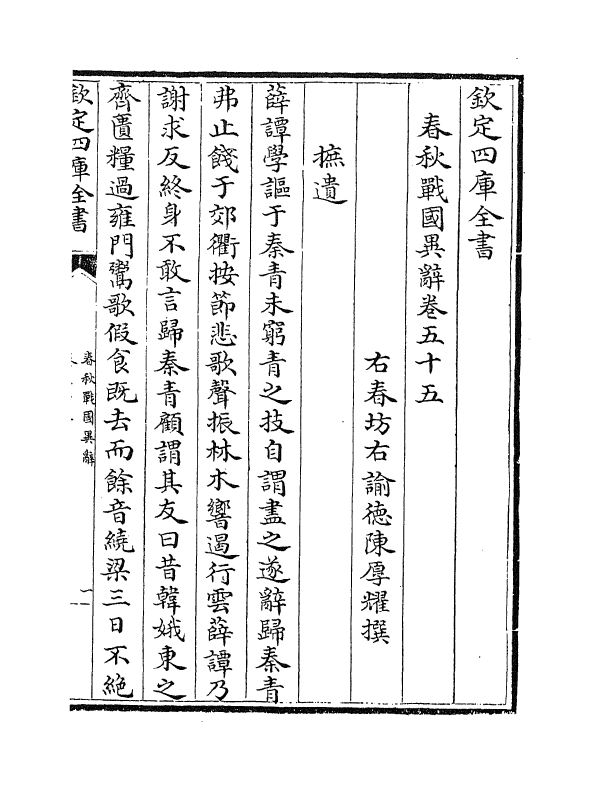 欽定四庫全書
春秋戰國異辭卷五十五
右春坊右諭德陳厚耀撰
摭遺
薛譚學謳于秦青未窮青之技自謂盡之遂辭歸秦青
弗止餞于郊衢按節悲歌聲振林木響遏行雲薛譚乃
謝求反終身不敢言歸秦青顧謂其友曰昔韓娥東之
齊匱糧過雍門鬻歌假食既去而餘音繞梁三日不絶
欽定四庫全書
春秋戰國異辭
一